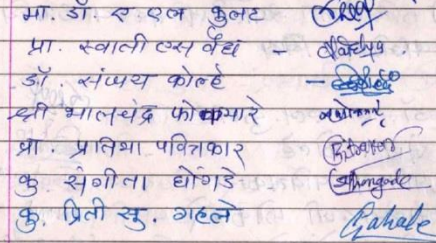 प्रा. डॉ. ए एल कुलट
प्रा. स्वाती एस वैद्य -
डॉ. संजय कोल्हे -
श्री भालचंद्र फोकमारे
प्रा. प्रतिभा पवित्रकार
कु संगीता घोंगडे
कु. प्रिती सु. गहले Gahale